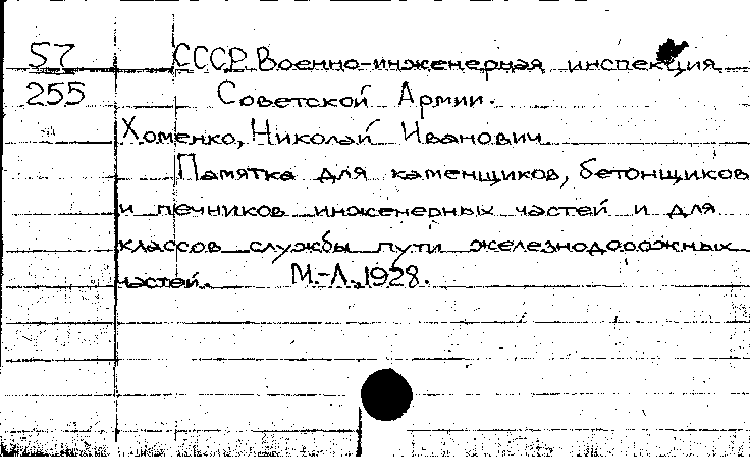 57 СССР. Военно-инженерная инспекция
255 Советской Армии.
Хоменко, Николай Иванович
Памятка для каменщиков, бетонщиков
и печников инженерных частей и для
классов службы пути железнодорожных
частей. М.-Л., 1928.